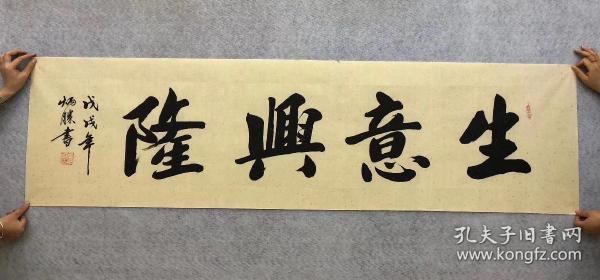 生意興隆
戊戌年
炳勝書
孔夫子旧書网
www.kongfz.com